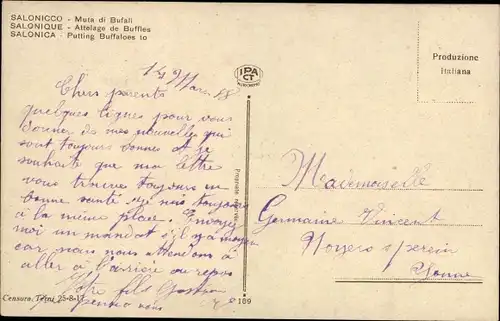 SALONICCO - Muta di Bufali
SALONIQUE - Attelage de Buffles
SALONICA - Putting Buffaloes to
IPA CT
Produzione
Italiana
14 Mars 18
Chers parents
quelques lignes pour vous
donner de mes nouvelles qui
sont toujours bonnes et je
souhaite que ma lettre
vous trouve toujours en
bonne santé je suis toujours
à la même place. Envoyez
moi un mandat s'il y a moyen
car nous nous attendons à
aller à l'arrière au repos
Votre fils Gaston
pense à vous
Mademoiselle
Germaine Vincent
Noyers s/ serein
Yonne
Censura. Trini 25-8-17
189